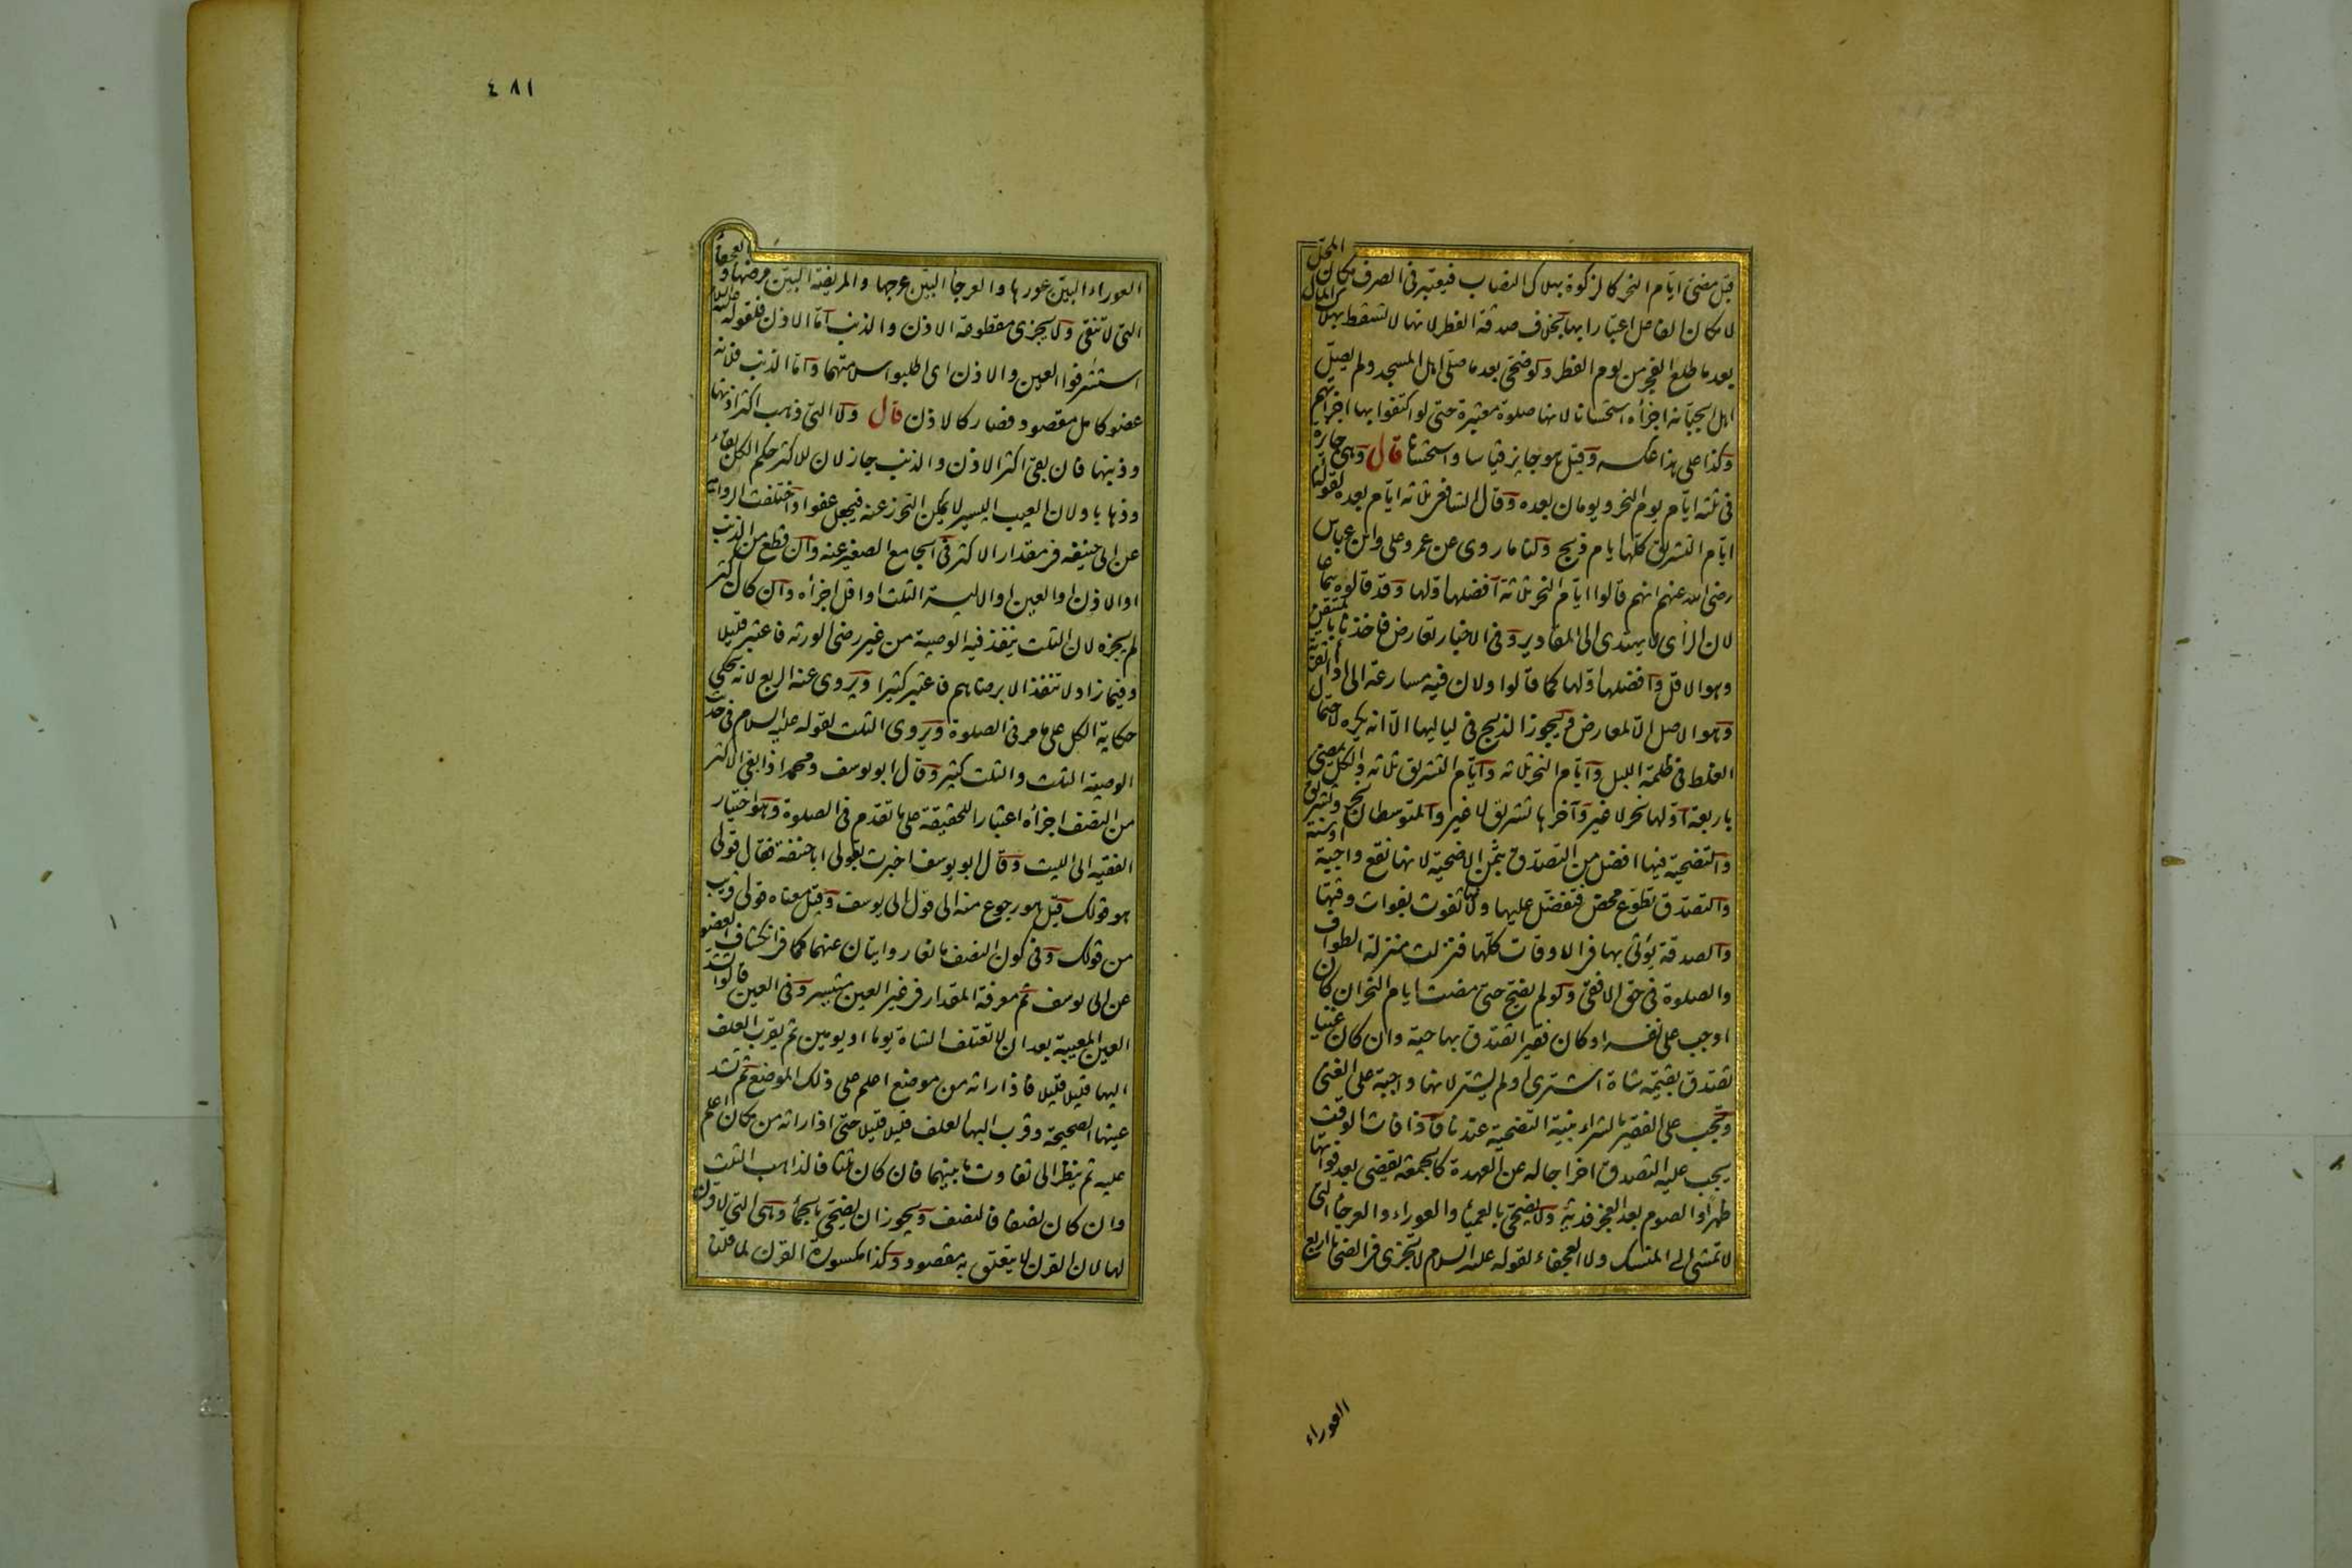 قبل مضى ايام النحر كالزكوة بهلاك النصاب فيعتبر فى الصرف مكان المحل
لا مكان الفاعل اعتبارا بها بخلاف صدقة الفطر لانها لا تسقط بهلاك المال
بعد ما طلع الفجر من يوم الفطر ولو ضحى بعد ما صلى اهل المسجد ولم يصل
اهل الجبانة اجزأه استحسانا لانها صلوة معتبرة حتى لو اكتفوا بها اجزأتهم
وكذا على هذا عكسه وقيل هو جايز قياسا واستحسانا قال وهى جايزة
فى ثلثة ايام يوم النحر ويومان بعده وقال الشافعى ثلاثة ايام بعده لقوله
ايام التشريق كلها ايام ذبح ولنا ما روى عن عمر وعلى وابن عباس
رضى الله عنهم انهم قالوا ايام النحر ثلاثة افضلها اولها وقد قالوه سماعا
لان الرأى لا يهتدى الى المقادير وفى الاخبار تعارض فاخذنا بالمتيقن
وهو الاقل وافضلها اولها كما قالوا ولان فيه مسارعة الى اداء القربة
وهو الاصل الا لمعارض ويجوز الذبح فى لياليها الا انه يكره لاحتمال
الغلط فى ظلمة الليل وايام النحر ثلاثة وايام التشريق ثلاثة والكل يمضى
باربعة اولها نحر لا غير وآخرها تشريق لا غير والمتوسطان نحر وتشريق
والتضحية فيها افضل من التصدق بثمن الاضحية لانها تقع واجبة او سنة
والتصدق تطوع محض فتفضل عليها ولانها تفوت بفوات وقتها
والصدقة يؤتى بها فى الاوقات كلها فنزلت منزلة الطواف
والصلوة فى حق الافقى ولو لم يضح حتى مضت ايام النحر ان كان
اوجب على نفسه او كان فقيرا تصدق بها حية وان كان غنيا
تصدق بقيمة شاة اشترى او لم يشتر لانها واجبة على الغنى
وتجب على الفقير بالشراء بنية التضحية عندنا فاذا فات الوقت
يجب عليه التصدق اخراجا له عن العهدة كالجمعة يقضى بعد فواتها
ظهرا والصوم بعد العجز فدية ولا يضحى بالعمياء والعوراء والعرجاء التى
لا تمشى الى المنسك ولا العجفاء لقوله عليه السلام لا تجزى فى الضحايا اربع
العوراء
٤٨١
العوراء البين عورها والعرجاء البين عرجها والمريضة البين مرضها والعجفاء
التى لا تنقى ولا يجزى مقطوعة الاذن والذنب اما الاذن فلقوله عليه السلام
استشرفوا العين والاذن اى اطلبوا سلامتهما واما الذنب فلانه
عضو كامل مقصود فصار كالاذن قال ولا التى ذهب اكثر اذنها
وذنبها فان بقى اكثر الاذن والذنب جاز لان للاكثر حكم الكل بقاء
وذهابا ولان العيب اليسير لا يمكن التحرز عنه فيجعل عفوا واختلفت الرواية
عن ابى حنيفة فى مقدار الاكثر فى الجامع الصغير عنه وان قطع من الذنب
او الاذن او العين او الالية الثلث او اقل اجزأه وان كان اكثر
لم يجزه لان الثلث ينفذ فيه الوصية من غير رضى الورثة فاعتبر قليلا
وفيما زاد لا تنفذ الا برضاهم فاعتبر كثيرا ويروى عنه الربع لانه يحكى
حكاية الكل على ما مر فى الصلوة ويروى الثلث لقوله عليه السلام فى حديث
الوصية الثلث والثلث كثير وقال ابو يوسف ومحمد اذا بقى الاكثر
من النصف اجزأه اعتبارا للحقيقة على ما تقدم فى الصلوة وهو اختيار
الفقيه ابى الليث وقال ابو يوسف اخبرت بقولى ابا حنيفة فقال قولى
هو قولك قيل هو رجوع منه الى قول ابى يوسف وقيل معناه قولى قريب
من قولك وفى كون النصف مانعا روايتان عنهما كما فى انكشاف العضو
عن ابى يوسف ثم معرفة المقدار فى غير العين متيسر وفى العين قالوا تشد
العين المعيبة بعد ان لا تعتلف الشاة يوما او يومين ثم يقرب العلف
اليها قليلا قليلا فاذا راته من موضع اعلم على ذلك الموضع ثم تشد
عينها الصحيحة وقرب اليها العلف قليلا قليلا حتى اذا راته من مكان اعلم
عليه ثم ينظر الى تفاوت ما بينهما فان كان ثلثا فالذاهب الثلث
وان كان نصفا فالنصف ويجوز ان يضحى بالجماء وهى التى لا قرن
لها لان القرن لا يتعلق به مقصود وكذا مكسورة القرن لما قلنا